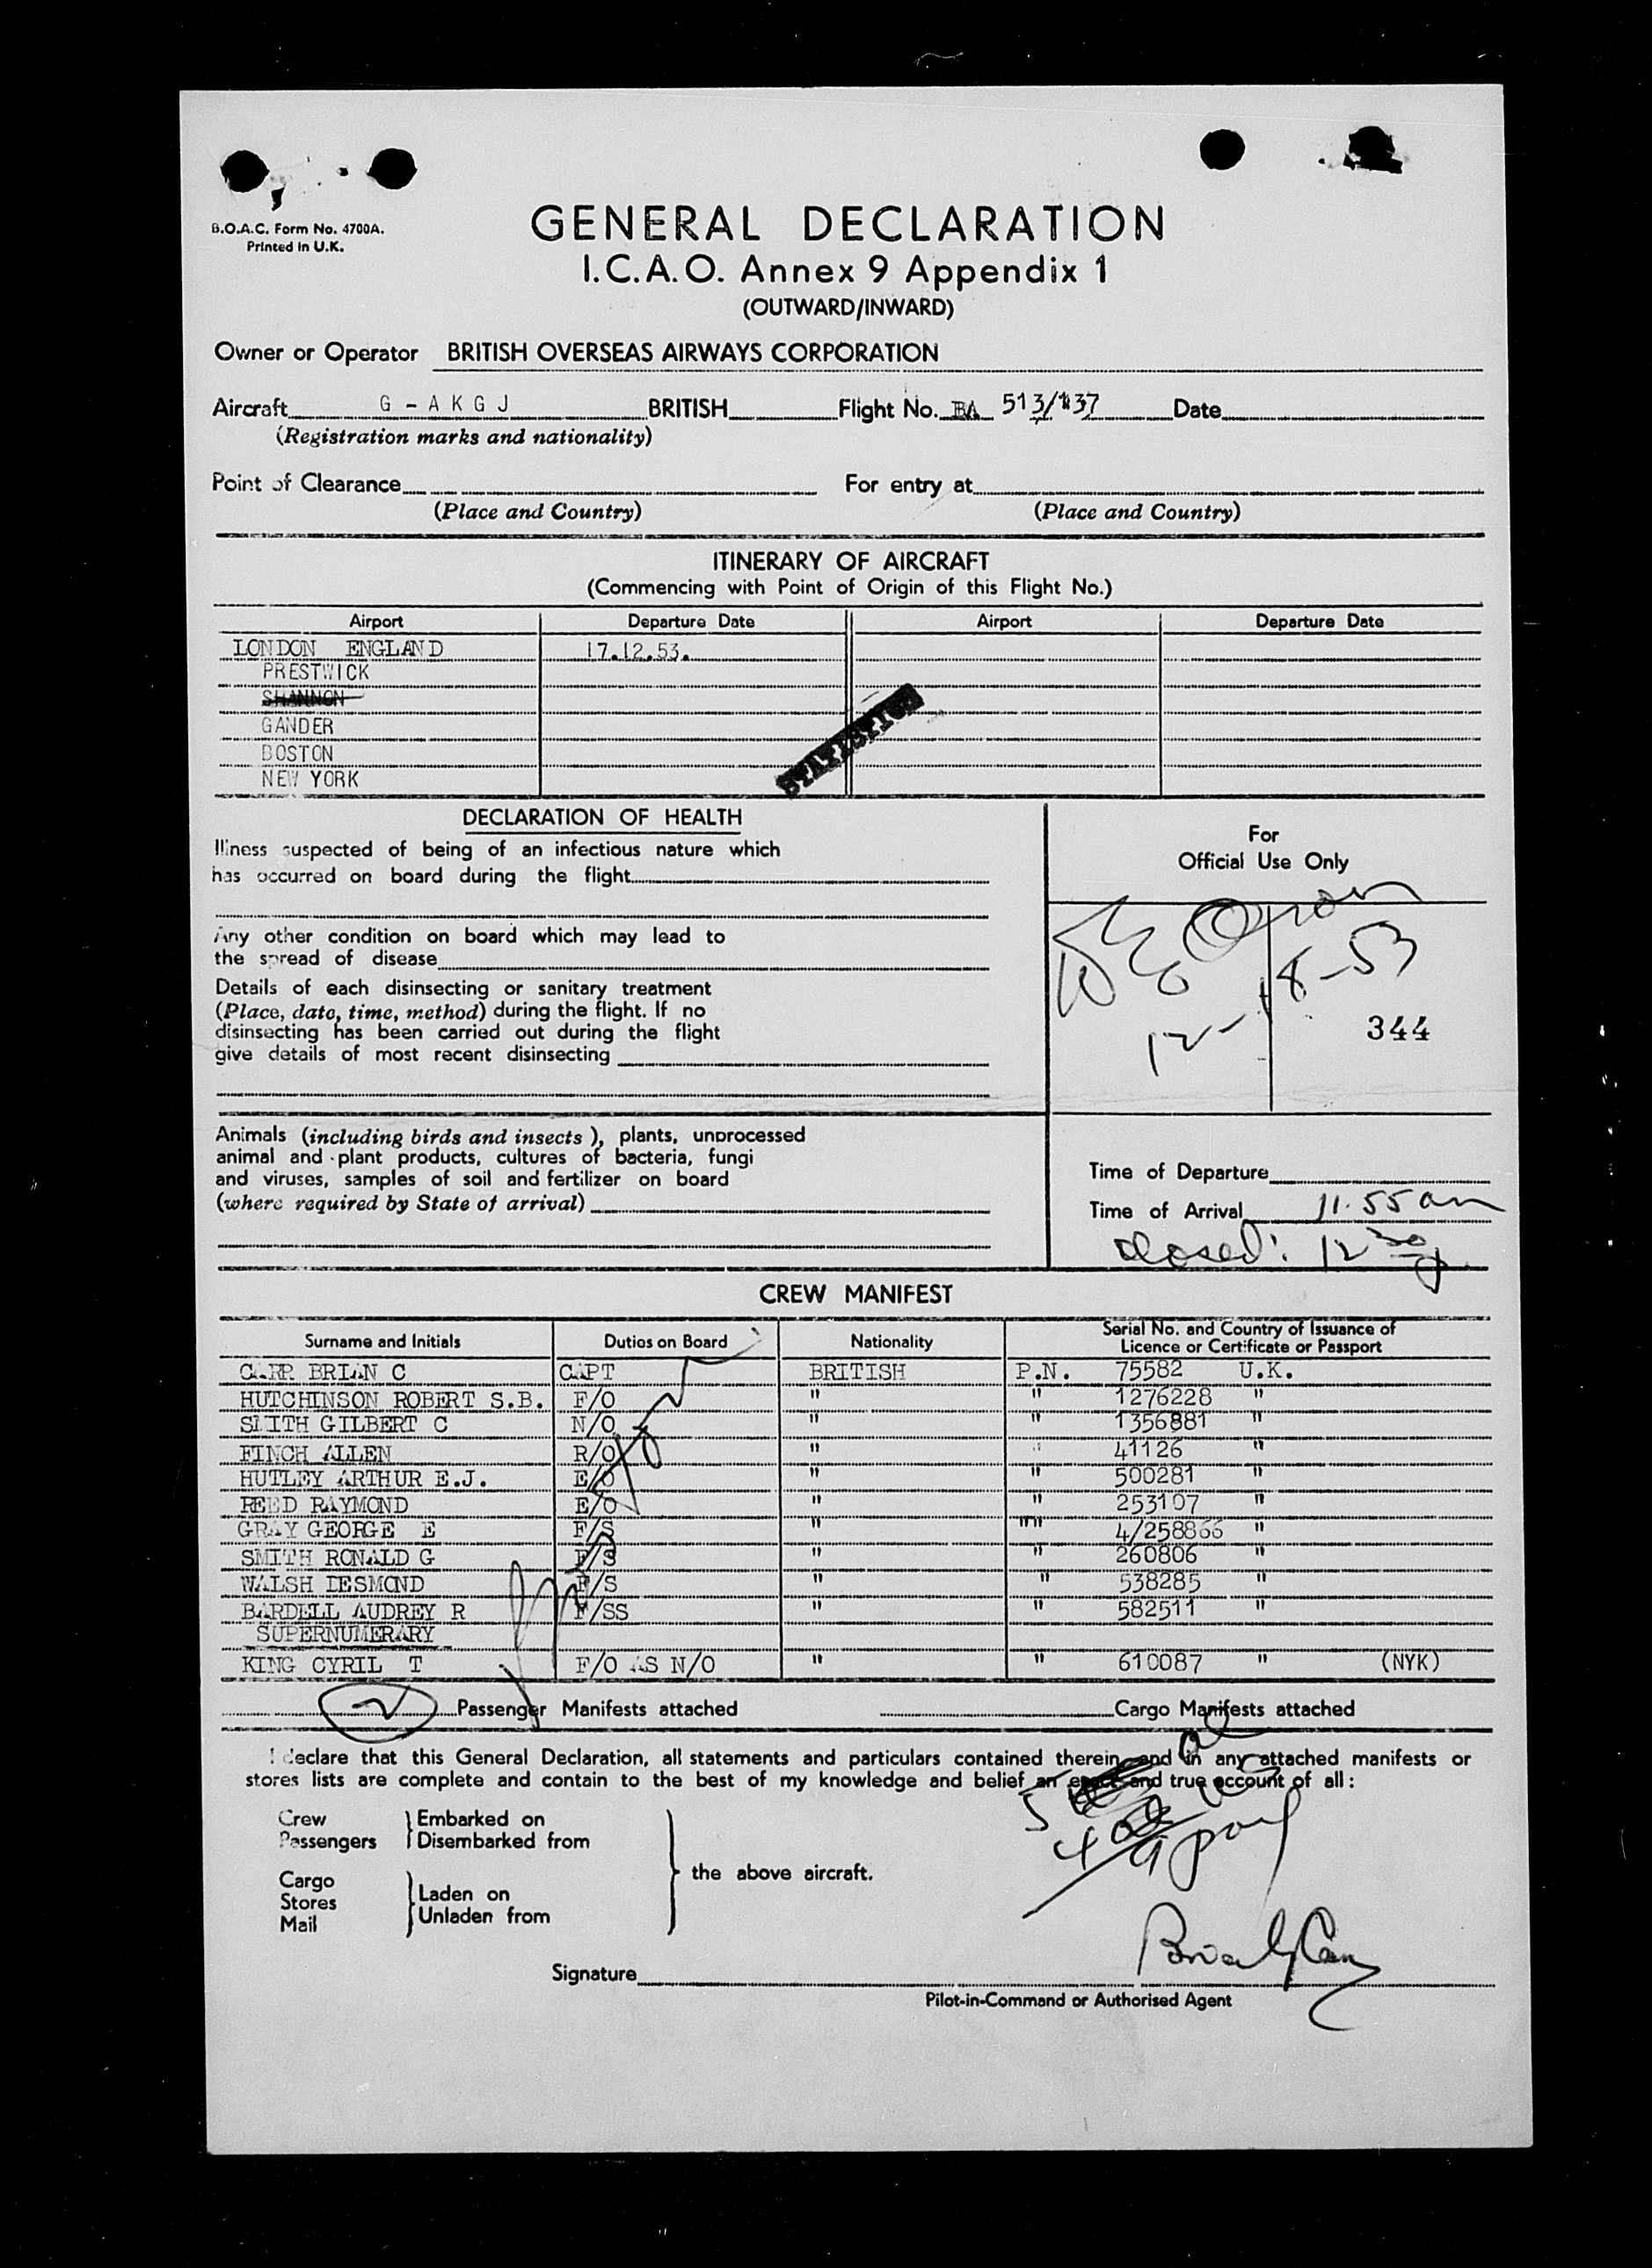 B.O.A.C. Form No. 4700A.
Printed in U.K.
GENERAL DECLARATION
I.C.A.O. Annex 9 Appendix 1
(OUTWARD/INWARD)
Owner or Operator BRITISH OVERSEAS AIRWAYS CORPORATION
Aircraft G - A K G J BRITISH Flight No. BA 513/137 Date
(Registration marks and nationality)
Point of Clearance For entry at
(Place and Country) (Place and Country)
ITINERARY OF AIRCRAFT
(Commencing with Point of Origin of this Flight No.)
Airport Departure Date Airport Departure Date
LONDON ENGLAND 17.12.53.
PRESTWICK
SHANNON
GANDER
BOSTON
NEW YORK
DECLARATION OF HEALTH
Illness suspected of being of an infectious nature which
has occurred on board during the flight
Any other condition on board which may lead to
the spread of disease
Details of each disinsecting or sanitary treatment
(Place, date, time, method) during the flight. If no
disinsecting has been carried out during the flight
give details of most recent disinsecting
For
Official Use Only
12-18-53
344
Animals (including birds and insects), plants, unprocessed
animal and plant products, cultures of bacteria, fungi
and viruses, samples of soil and fertilizer on board
(where required by State of arrival)
Time of Departure
Time of Arrival 11.55 am
closed: 12 30 p
CREW MANIFEST
Surname and Initials Duties on Board Nationality Serial No. and Country of Issuance of Licence or Certificate or Passport
CARR BRIAN C CAPT BRITISH P.N. 75582 U.K.
HUTCHINSON ROBERT S.B. F/O " " 1276228 "
SMITH GILBERT C N/O " " 1356881 "
FINCH ALLEN R/O " " 41126 "
HUTLEY ARTHUR E.J. E/O " " 500281 "
REED RAYMOND E/O " " 253107 "
GRAY GEORGE E F/S " "" 4/258866 "
SMITH RONALD G F/S " " 260806 "
WALSH DESMOND F/S " " 538285 "
BARDELL AUDREY R F/SS " " 582511 "
SUPERNUMERARY
KING CYRIL T F/O AS N/O " " 610087 " (NYK)
2 Passenger Manifests attached Cargo Manifests attached
I declare that this General Declaration, all statements and particulars contained therein and in any attached manifests or
stores lists are complete and contain to the best of my knowledge and belief an exact and true account of all :
Crew Embarked on
Passengers Disembarked from
the above aircraft.
Cargo
Stores Laden on
Mail Unladen from
Signature
Pilot-in-Command or Authorised Agent